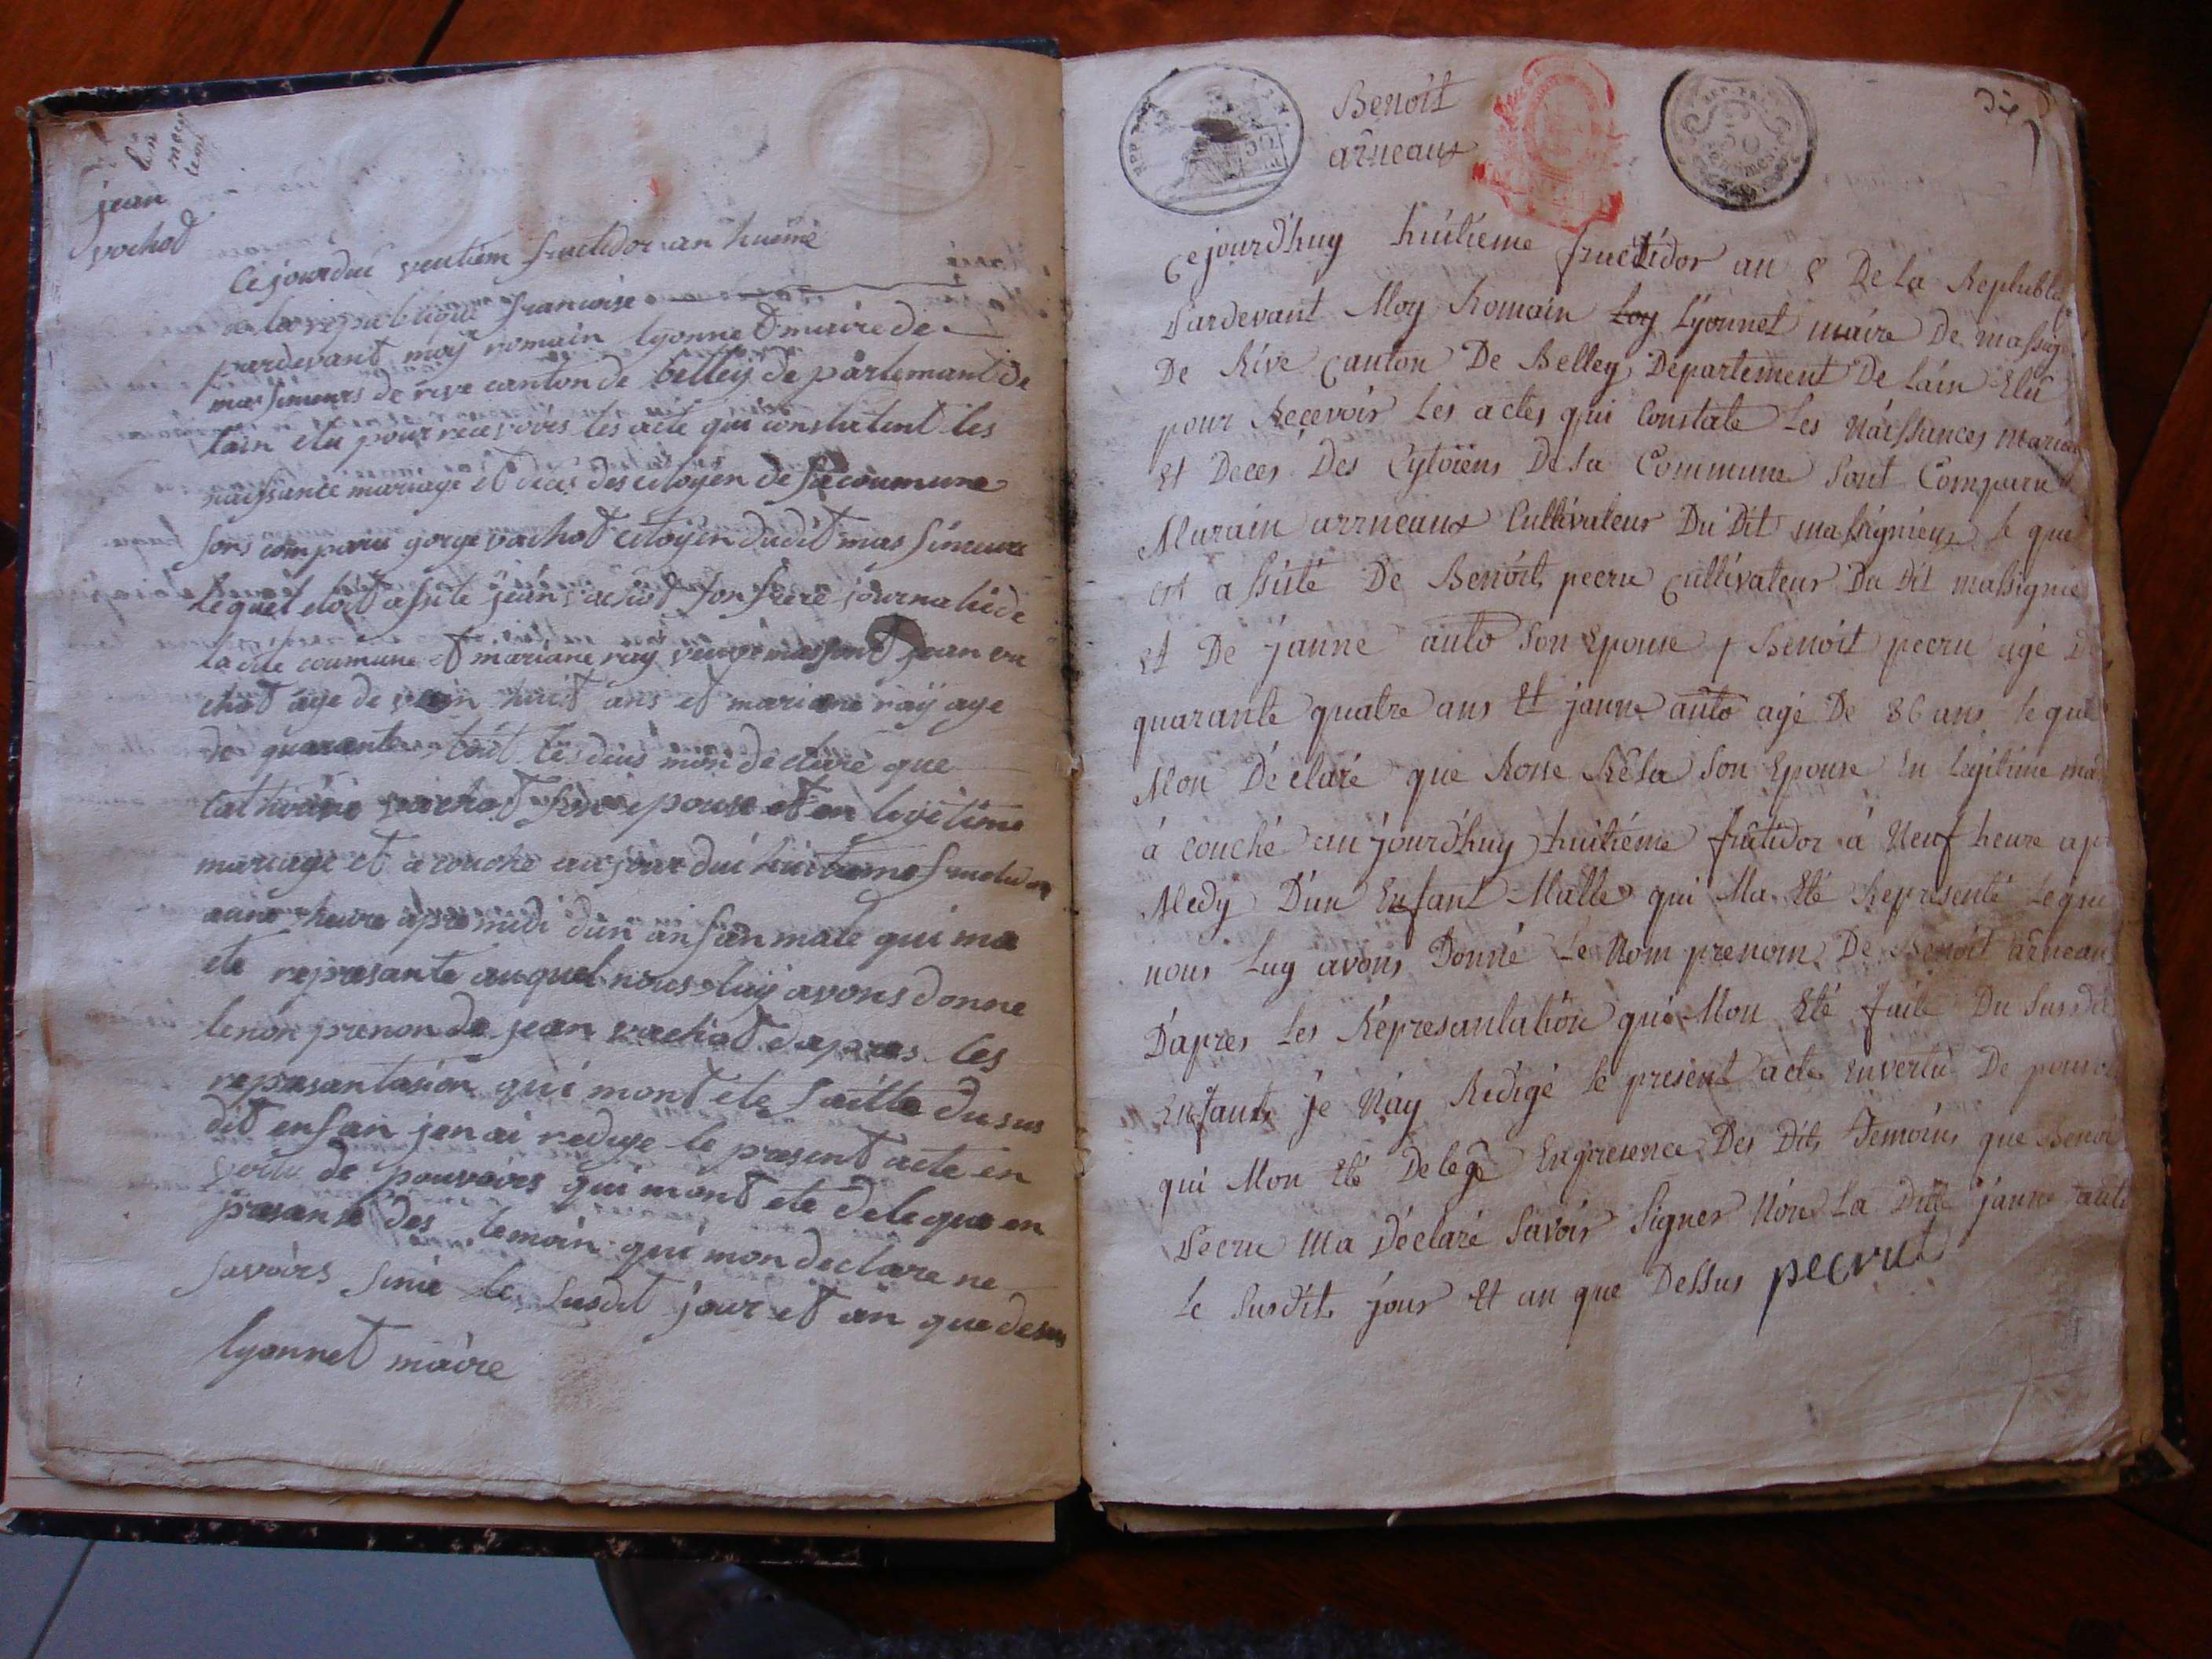 jean
vochod
Ce jourdui ventiem fructidor an huieme
de la republique francoise
pardevant moy romain lyonnet maire de
massimeurs de rive canton de belley de partemant de
lain elu pour recevoirs les acte qui constatent les
naissance mariage et deces des citoyen de sa coumune
sons comparu gorge vachot citoyen dudit massimeux
lequel etoit assite jean vachot son frere journalie de
la dite coumune et mariane ray veuve jean va
chot age de vein huit ans et mariane ray age
de quarante huit les deus mon declare que
Catherine vachot son epouse et en legitime
mariage et a couche aujourdui huitieme fructidor
a une heure apre midi dun anfan male qui ma
ete represante auquel nous luy avons donne
le non prenon de jean vachot dapres les
represantasion qui mont ete faitte du sus
dit enfan jen ai redige le present acte en
vertu de pouvoirs qui mont ete delegue en
presanse des temoin qui mon declare ne
savoirs sinie le susdit jour et an que desus
lyonnet maire
Benoit
arneaux
REP
50
REP. FRA
50
centimes
dix
Cejourdhuy huitieme fructidor an 8 De la Republiq
Pardevant Moy Romain Loy Lyonnet maire De massig
De Rive Canton De Belley Departement De Lain Elu
pour Recevoir Les actes qui Constate Les Naissances maria
Et Deces Des Cytoiens De La Commune Sont Comparu
Marain arrneaux Cultivateur Du Dit massignieux le que
est assisté De Benoit pecru cultivateur Du Dit massignie
et De janne auto Son Epouse / Benoit pecru agé D
quarante quatre ans Et janne auto agé De 36 ans le que
Mon Déclaré que Rosse Réla Son Epouse En Legitime ma
à couché aujourdhuy huitiéme frutidor à Neuf heure ap
Medy D'un Enfant Malle qui Ma Eté Representé Leque
nous Luy avons Donné Le Nom prenom De Benoit arneau
D'apres Les Representation qui Mon Eté faite Du Susdit
Enfant je Nay Redigé le present acte En vertu De pouvoi
qui Mon Eté Delegé En presence Des Dits Temoins que Benoi
Pecru Ma Déclaré Savoir Signer Non La Ditte janne auto
Le Susdit jour Et an que Dessus pecrut